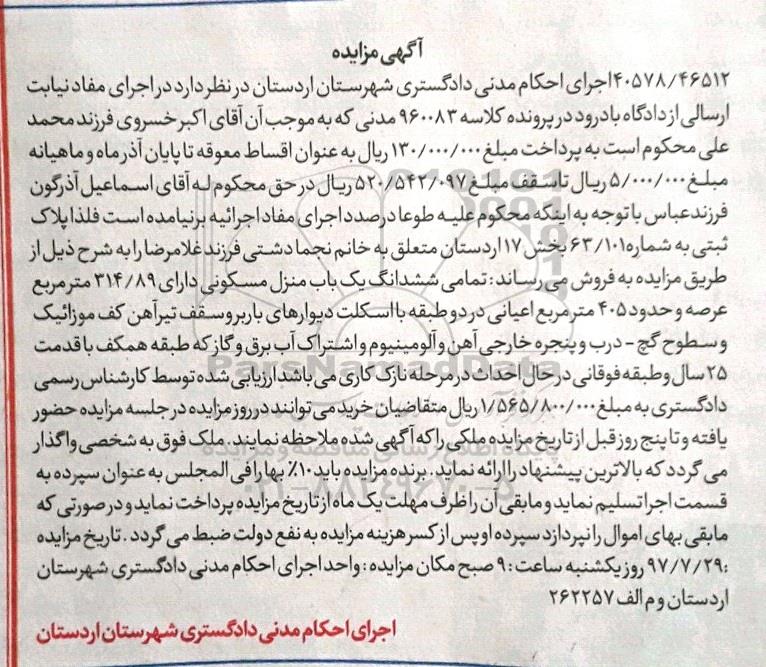 آگهی مزایده
۴۰۵۷۸/۴۶۵۱۲اجرای احکام مدنی دادگستری شهرستان اردستان در نظر دارد در اجرای مفاد نیابت
ارسالی از دادگاه بادرود در پرونده کلاسه ۹۶۰۰۸۳ مدنی که به موجب آن آقای اکبر خسروی فرزند محمد
علی محکوم است به پرداخت مبلغ ۱۳۰/۰۰۰/۰۰۰ ریال به عنوان اقساط معوقه تا پایان آذر ماه و ماهیانه
مبلغ ۵/۰۰۰/۰۰۰ ریال تا سقف مبلغ ۵۲۰/۵۴۲/۰۹۷ ریال در حق محکوم له آقای اسماعیل آذرگون
فرزند عباس با توجه به اینکه محکوم علیه طوعا درصدد اجرای مفاد اجرائیه برنیامده است فلذا پلاک
ثبتی به شماره ۶۳/۱۰۱ بخش ۱۷ اردستان متعلق به خانم نجما دشتی فرزند غلامرضا را به شرح ذیل از
طریق مزایده به فروش می رساند: تمامی ششدانگ یک باب منزل مسکونی دارای ۳۱۴/۸۹ متر مربع
عرصه و حدود ۴۰۵ متر مربع اعیانی در دو طبقه با اسکلت دیوارهای باربر و سقف تیرآهن کف موزائیک
و سطوح گچ - درب و پنجره خارجی آهن و آلومینیوم و اشتراک آب برق و گاز که طبقه همکف با قدمت
۲۵ سال و طبقه فوقانی در حال احداث در مرحله نازک کاری می باشد ارزیابی شده توسط کارشناس رسمی
دادگستری به مبلغ ۱/۵۶۵/۸۰۰/۰۰۰ ریال متقاضیان خرید می توانند در روز مزایده در جلسه مزایده حضور
یافته و تا پنج روز قبل از تاریخ مزایده ملکی را که آگهی شده ملاحظه نمایند. ملک فوق به شخصی واگذار
می گردد که بالاترین پیشنهاد را ارائه نماید. برنده مزایده باید ۱۰٪ بها را فی المجلس به عنوان سپرده به
قسمت اجرا تسلیم نماید و مابقی آن را ظرف مهلت یک ماه از تاریخ مزایده پرداخت نماید و در صورتی که
مابقی بهای اموال را نپردازد سپرده او پس از کسر هزینه مزایده به نفع دولت ضبط می گردد. تاریخ مزایده
:۹۷/۷/۲۹ روز یکشنبه ساعت: ۹ صبح مکان مزایده: واحد اجرای احکام مدنی دادگستری شهرستان
اردستان و م الف ۲۶۲۲۵۷
اجرای احکام مدنی دادگستری شهرستان اردستان
ParsNamadData
پایگاه اطلاع رسانی مناقصه و مزایده
۰۲۱-۸۸۳۴۹۶۷۰-۵